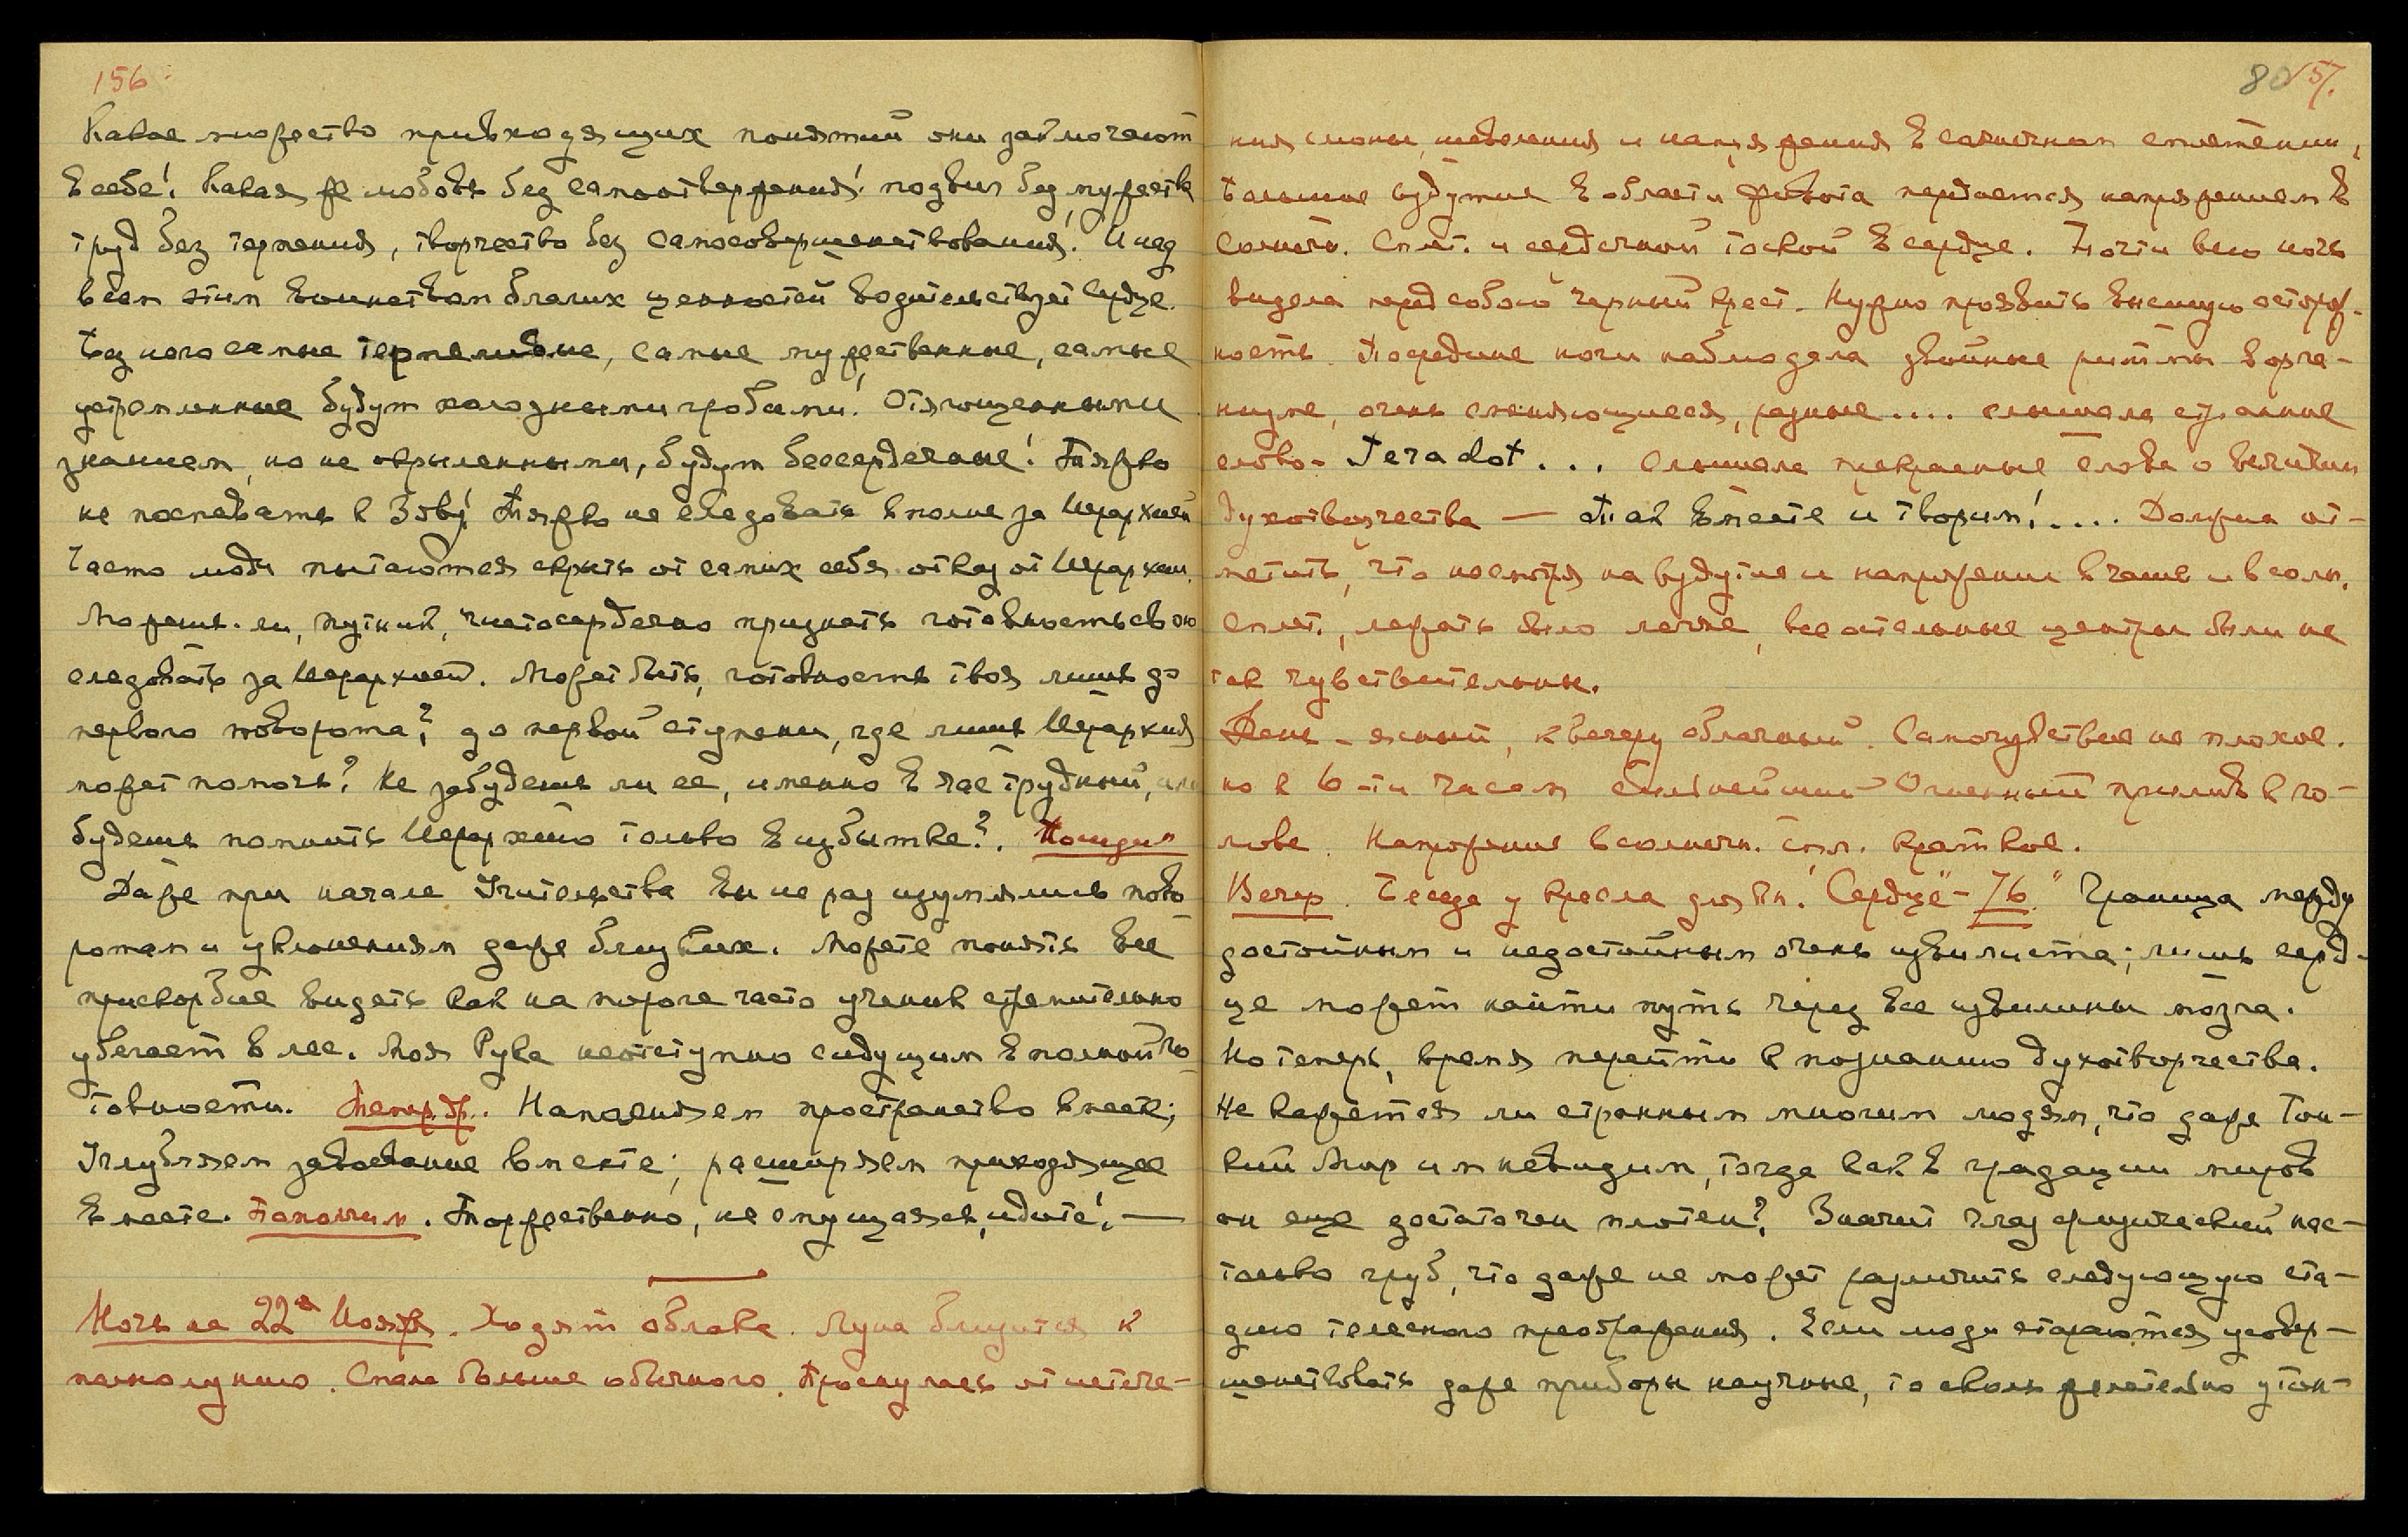 156
Какое множество привходящих понятий они заключают
в себе! Какая же любовь без самоотвержения! подвиг без мужества
труд без терпения, творчество без самосовершенствования! И над
всем этим воинством благих ценностей водительствует сердце.
Без него самые терпеливые, самые мужественные, самые
устремленные будут холодными гробами! Отягощенными
знанием, но не окрыленными, будут бессердечные! Тяжко
не поспевать к Зову! Тяжко не следовать вполне за Иерархией
Часто люди пытаются скрыть от самих себя отказ от Иерархии.
Можешь-ли, путник, чистосердечно признать готовность свою
следовать за Иерархией. Может быть, готовность твоя лишь до
первого поворота? до первой ступени, где лишь Иерархия
может помочь? Не забудешь ли ее, именно в час трудный, или
будешь помнить Иерархию только в избытке?.
Даже при начале Учительства вы не раз изумлялись пово-
ротам и уклонениям даже близких. Можете понять все
прискорбие видеть как на пороге часто ученик стремительно
убегает в лес. Моя Рука неотступно сидущим в полной го-
товности. Напрягаем пространство вместе;
Углубляем завоевание вместе; расширяем приходящее
вместе. Торжественно, не смущаясь, идите! —
Ночь на 22ое Ноября. Ходят облака. Луна близится к
полнолунию. Спала больше обычного. Проснулась от истече-
80 157.
ния слюны, шевеления и напряжения в солнечном сплетении,
большие вздутия в области живота передается напряжением в
солнечн. сплет. и сердечной тоской в сердце. Почти всю ночь
видела перед собою черный крест. Нужно проявить внешнюю осторож-
ность. Посредине ночи наблюдала двойные ритмы в орга-
низме, очень сменяющиеся, разные .... слышала странное
слово- Teradot . . . Слышала прекрасные слова о величии
духотворчества — Так вместе и творим! .... Должна от-
метить, что несмотря на вздутие и напряжении в чаше и в солн.
сплет., лежать было легче, все остальные центры были не
так чувствительны.
День - ясный, к вечеру облачный. Самочувствие не плохое.
но к 6-ти часам сильнейший Огненный прилив к го-
лове. Напряжение в солнечн. спл. краткое.
Вечер. Беседа у кресла для Кн. "Сердце"-76. Граница между
достойным и недостойным очень извилиста; лишь серд-
це может найти путь через все извилины мозга.
Но теперь, время перейти к познанию духотворчества.
Не кажется ли странным многим людям, что даже Тон-
кий Мир им невидим, тогда как в градации миров
он еще достаточен плотен? Значит глаз физический нас-
только груб, что даже не может различить следующую ста-
дию телесного преображения. Если люди стараются усовер-
шенствовать даже приборы научные, то сколь желательно утон-